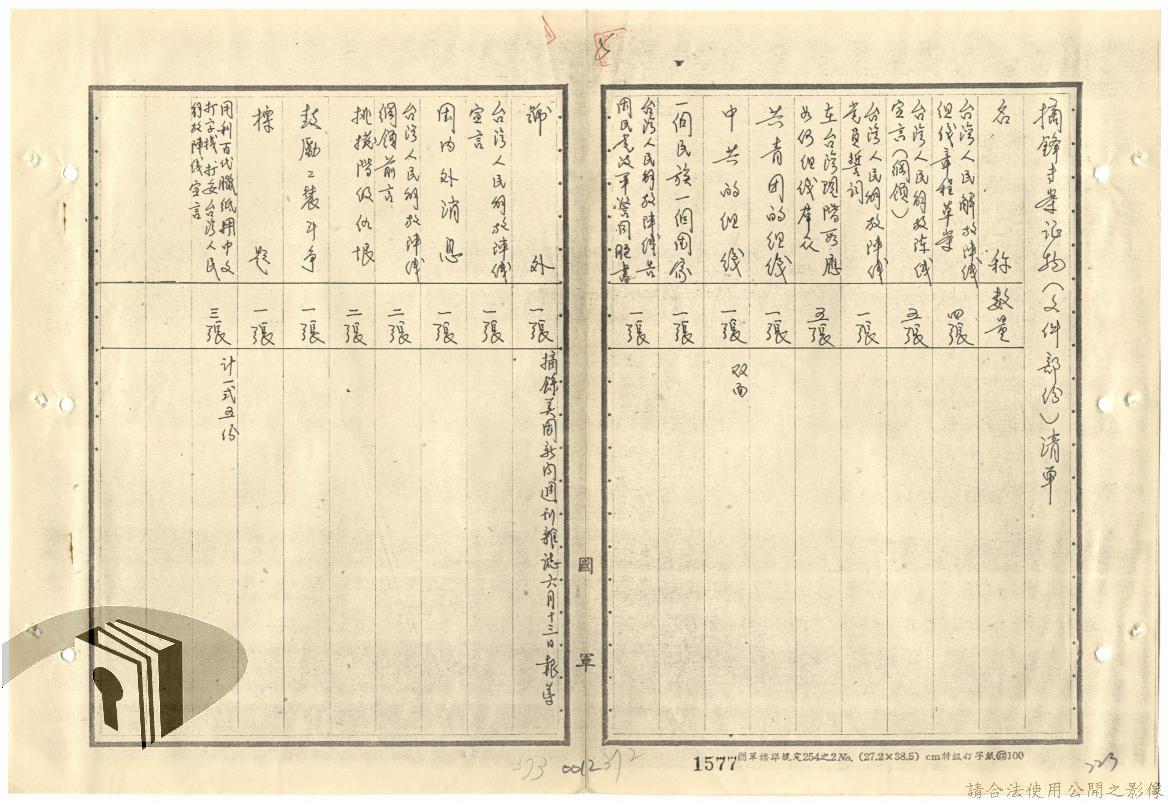 摘錄专案证物(文件部份)清單
名称 数量
台湾人民解放陣綫
组线章程草案
四張
台湾人民解放陣綫
宣言(綱領)
五張
台湾人民解放陣綫
党員誓詞
一張
在台湾現階段應
如何组线群众
五張
共青团的组线
一張
中共的组线
一張
双面
一個民族一個国家
一張
台湾人民解放陣綫告
国民党政軍警同胞書
一張
號外
一張
摘錄美国新闻週刊雜誌六月十三日報导
台湾人民解放陣綫
宣言
一張
国内外消息
一張
台湾人民解放陣綫
綱領前言
二張
挑撥階级仇恨
二張
鼓勵武裝斗争
一張
標題
一張
用利百代臘紙用中文
打字机打妥台湾人民
解放陣线宣言
三張
计一式五份
國軍
1577
國軍標準規定254之2No. (27.2×38.5) cm特級打字紙@100
373
0012372
323
請合法使用公開之影像